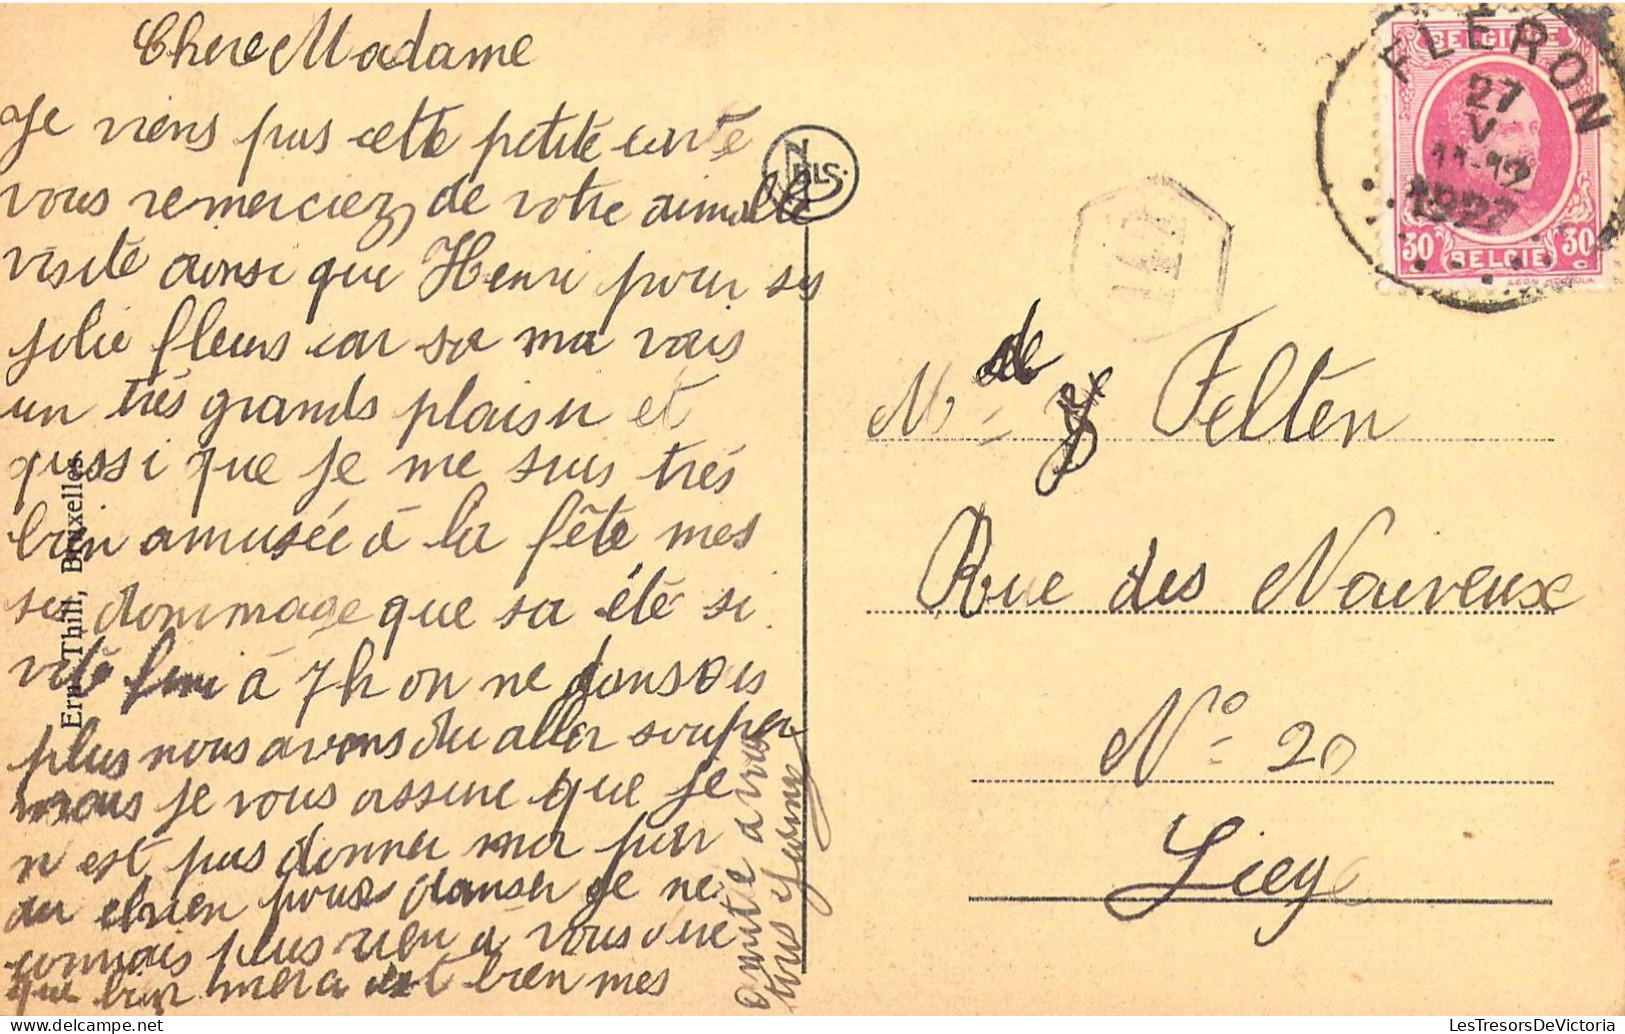 Chere Madame
Je viens pas cette petite carte
vous remerciez, de votre aimable
visite ainsi que Henri pour ses
jolie fleurs car sa ma vais
un très grands plaisir et
aussi que je me suis très
bien amusée à la fête mes
ses dommage que sa été si
vite fini à 7h on ne dansais
plus nous avons du aller souper
mais je vous assure que je
n est pas donner ma par
au chien pour danser je ne
connais plus rien à vous
que bien merci est bien mes
amitié a vous
tous
Ern. Thill, Bruxelles.
NELS.
142
FLERON
27
V
11-12
1927
BELGIQUE
30 BELGIE 30
Mde Felten
Rue des Naiveux
No 20
Liege
LesTresorsDeVictoria